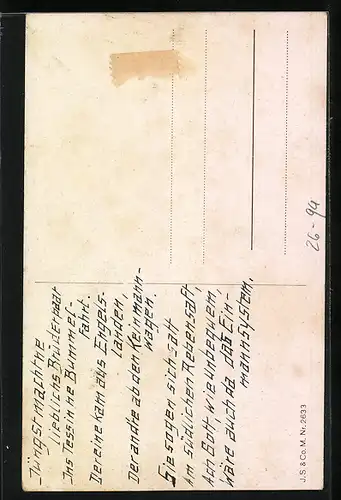 Jüngst machtne
lieblichs Brüderpaar
Ins Tessin ne Bummel-
fahrt.
Der eine kam aus Engels-
landen,
Der andre ab den Keinmann-
wagen.
Sie sogen sich satt
Am südlichen Rebensaft,
Ach Gott, wie unbequem,
Wäre auch da das Ein-
mannsystem.
26-94
J. S. & Co. M. Nr. 2633